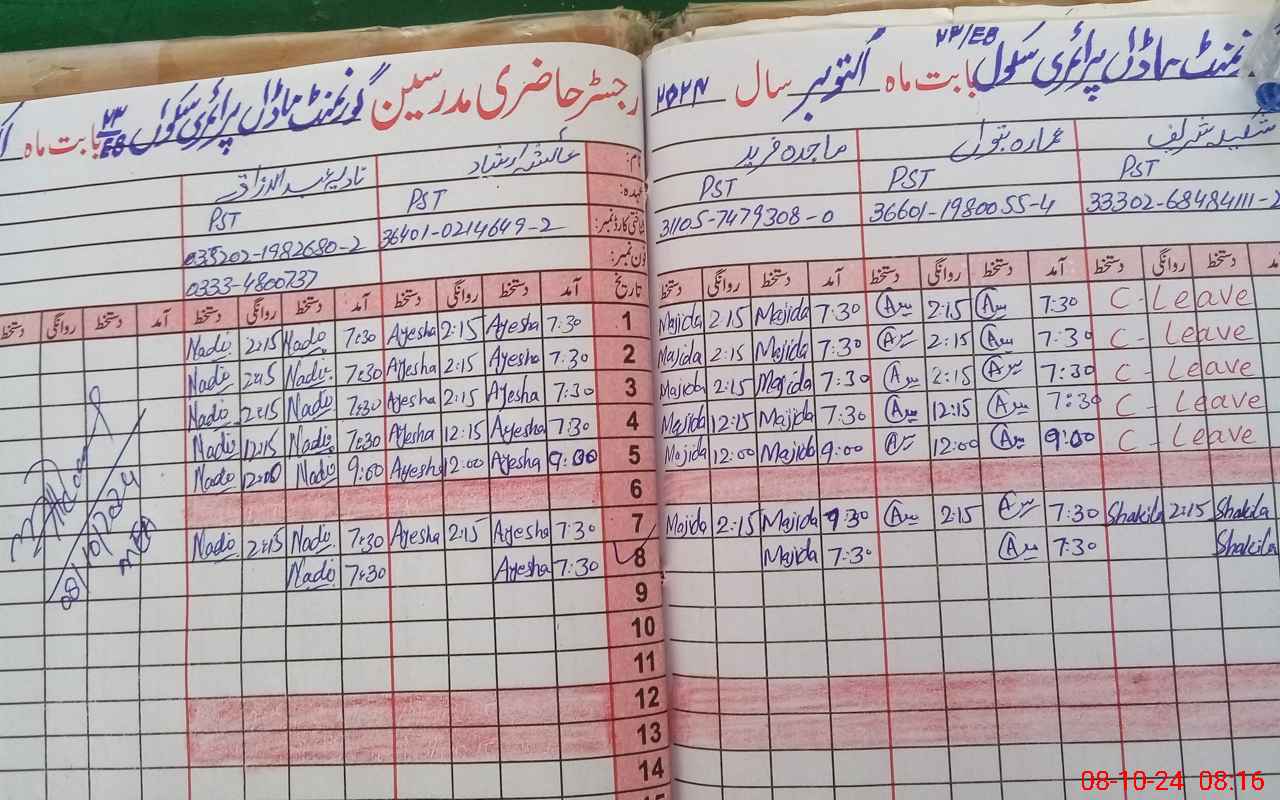 گورنمنٹ ماڈل پرائمری سکول ۲۳/EB بابت ماہ اکتوبر سال ۲۰۲۴
رجسٹر حاضری مدرسین گورنمنٹ ماڈل پرائمری سکول ۲۳/EB بابت ماہ
نام: شکیلہ شریف عمارہ بتول ماجدہ فرید
عائشہ ارشاد نادیہ عبدالرزاق
عہدہ: PST PST PST PST PST
شناختی کارڈ نمبر: 36601-1980055-4 31105-7479308-0
36401-0214649-2
فون نمبر: 0333-4800737
تاریخ آمد دستخط روانگی دستخط آمد دستخط روانگی دستخط آمد دستخط روانگی دستخط
1 7:30 Ayesha 2:15 Ayesha 7:30 Nadi 2:15 Nadi
Majida 2:15 Majida 7:30 2:15 7:30 C-Leave
2 7:30 Ayesha 2:15 Ayesha 7:30 Nadi 2:15 Nadi
Majida 2:15 Majida 7:30 2:15 7:30 C-Leave
3 7:30 Ayesha 2:15 Ayesha 7:30 Nadi 2:15 Nadi
Majida 2:15 Majida 7:30 2:15 7:30 C-Leave
4 7:30 Ayesha 12:15 Ayesha 7:30 Nadi 12:15 Nadi
Majida 12:15 Majida 7:30 12:15 7:30 C-Leave
5 9:00 Ayesha 12:00 Ayesha 9:00 Nadi 12:00 Nadi
Majida 12:00 Majida 9:00 12:00 9:00 C-Leave
6
7 7:30 Ayesha 2:15 Ayesha 7:30 Nadi 2:15 Nadi
Majida 2:15 Majida 7:30 2:15 7:30 Shakila 2:15 Shakila
8 7:30 Ayesha 7:30 Nadi
Majida 7:30 7:30 Shakila
9
10
11
12
13
14
08/10/2024
MEA
08-10-24 08:16